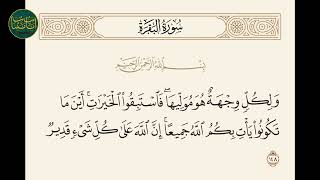 سُورَةُ البَقَرَةِ
بِسْمِ اللَّهِ الرَّحْمَٰنِ الرَّحِيمِ
وَلِكُلٍّ وِجْهَةٌ هُوَ مُوَلِّيهَا ۖ فَاسْتَبِقُوا الْخَيْرَاتِ ۚ أَيْنَ مَا
تَكُونُوا يَأْتِ بِكُمُ اللَّهُ جَمِيعًا ۚ إِنَّ اللَّهَ عَلَىٰ كُلِّ شَيْءٍ قَدِيرٌ
١٤٨